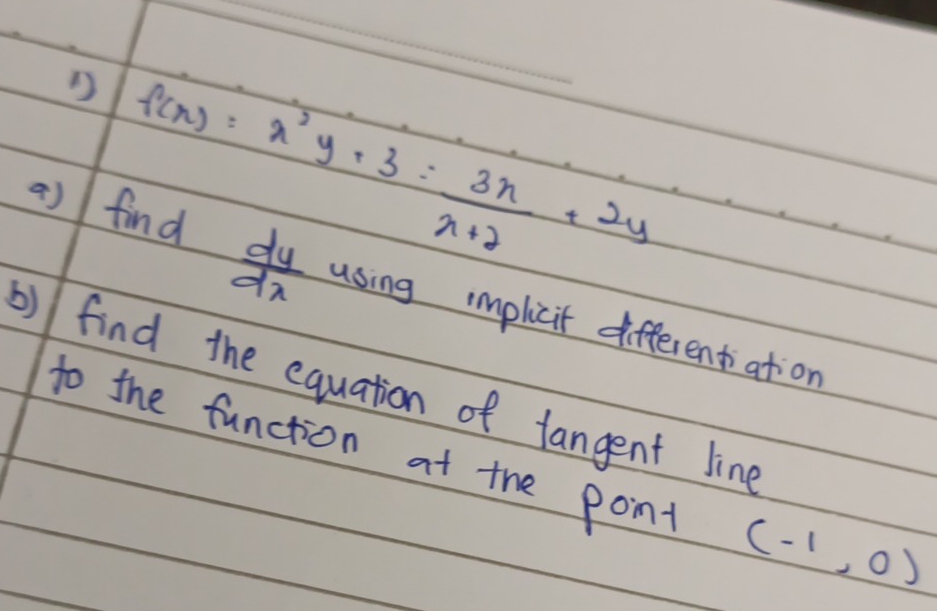 1) f(x) = x²y + 3 = 3x/(x+2) + 2y
a) find dy/dx using implicit differentiation
b) find the equation of tangent line
to the function at the point (-1, 0)